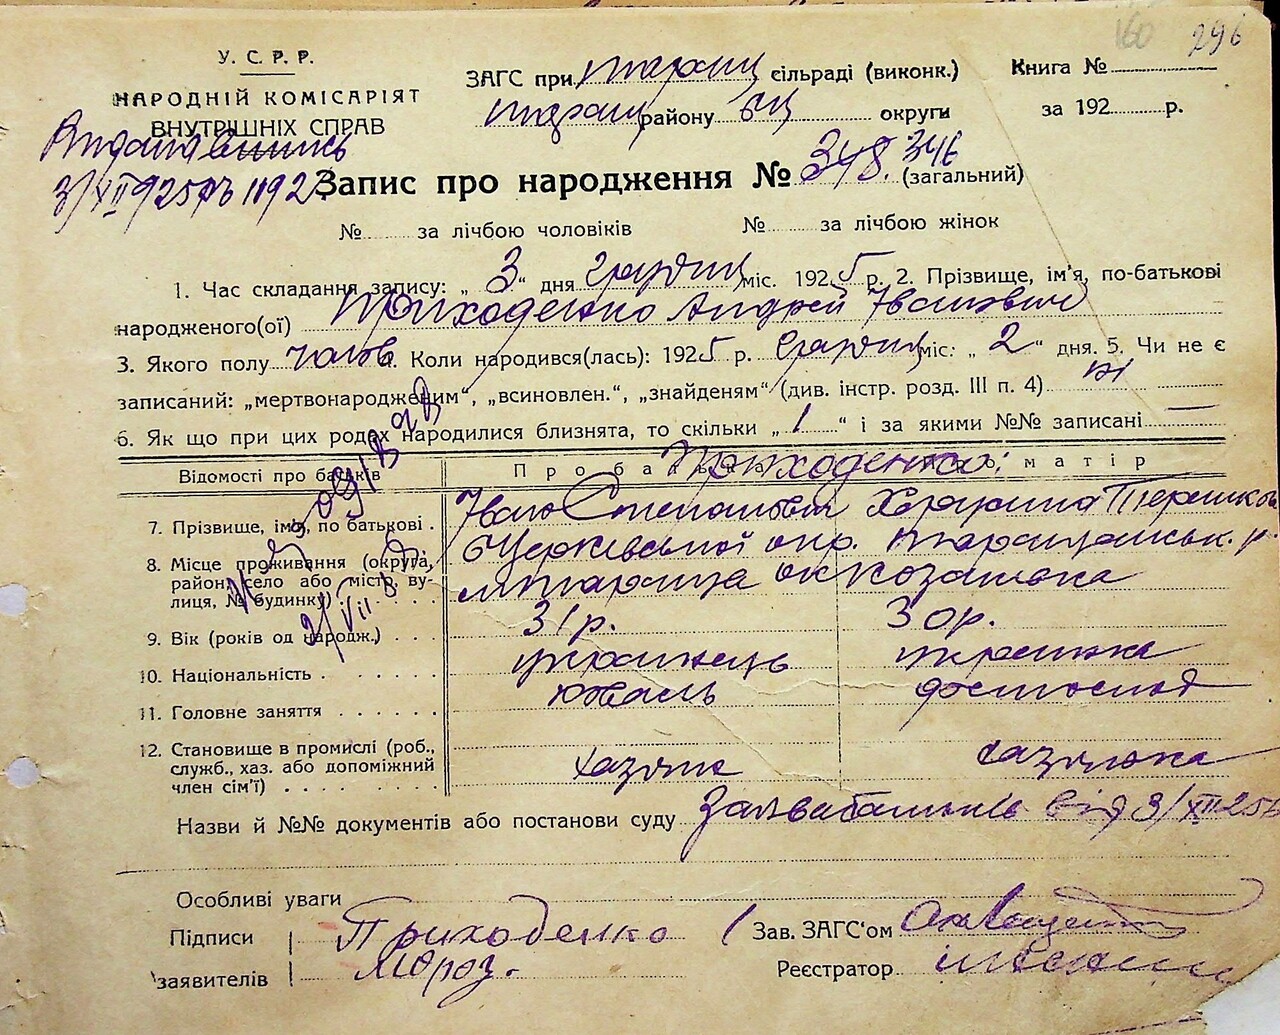 160 296
У. С. Р. Р.
НАРОДНІЙ КОМІСАРІЯТ
ВНУТРІШНІХ СПРАВ
ЗАГС при таращ сільраді (виконк.)
таращ району БЦ округи
Книга №
за 192 р.
3/XII 925 р. 1892
Запис про народження № 348. 346 (загальний)
№ за лічбою чоловіків № за лічбою жінок
1. Час складання запису: „ 3 “ дня грудня міс. 1925 р. 2. Прізвище, ім’я, по-батькові
народженого(ої) Приходенко Андрей Іванович
3. Якого полу чолов. 4. Коли народився(лась): 1925 р. Грудня міс: „ 2 “ дня. 5. Чи не є
записаний: „мертвонародженим“, „всиновлен.“, „знайденям“ (див. інстр. розд. III п. 4) ні
6. Як що при цих родах народилися близнята, то скільки „ 1 “ і за якими №№ записані —
Відомості про батьків Про батька Про матір
Приходенко:
7. Прізвище, ім’я, по батькові . Іван Степанович
8. Місце проживання (округа, район, село або місто, вулиця, № будинку) БЦерківської окр. Таращанськ. р.
м Тараща
9. Вік (років од народж.) . . . 31 р. 30 р.
10. Національність . . . . . . українець українка
11. Головне заняття . . . . . . коваль
12. Становище в промислі (роб., служб., хаз. або допоміжний член сім’ї) . . . . . . . . хазяїн хазяйка
Назви й №№ документів або постанови суду Заява батьків від 3/XII 25 р
Особливі уваги
Підписи заявителів Приходенко
Мороз.
Зав. ЗАГС’ом
Реєстратор